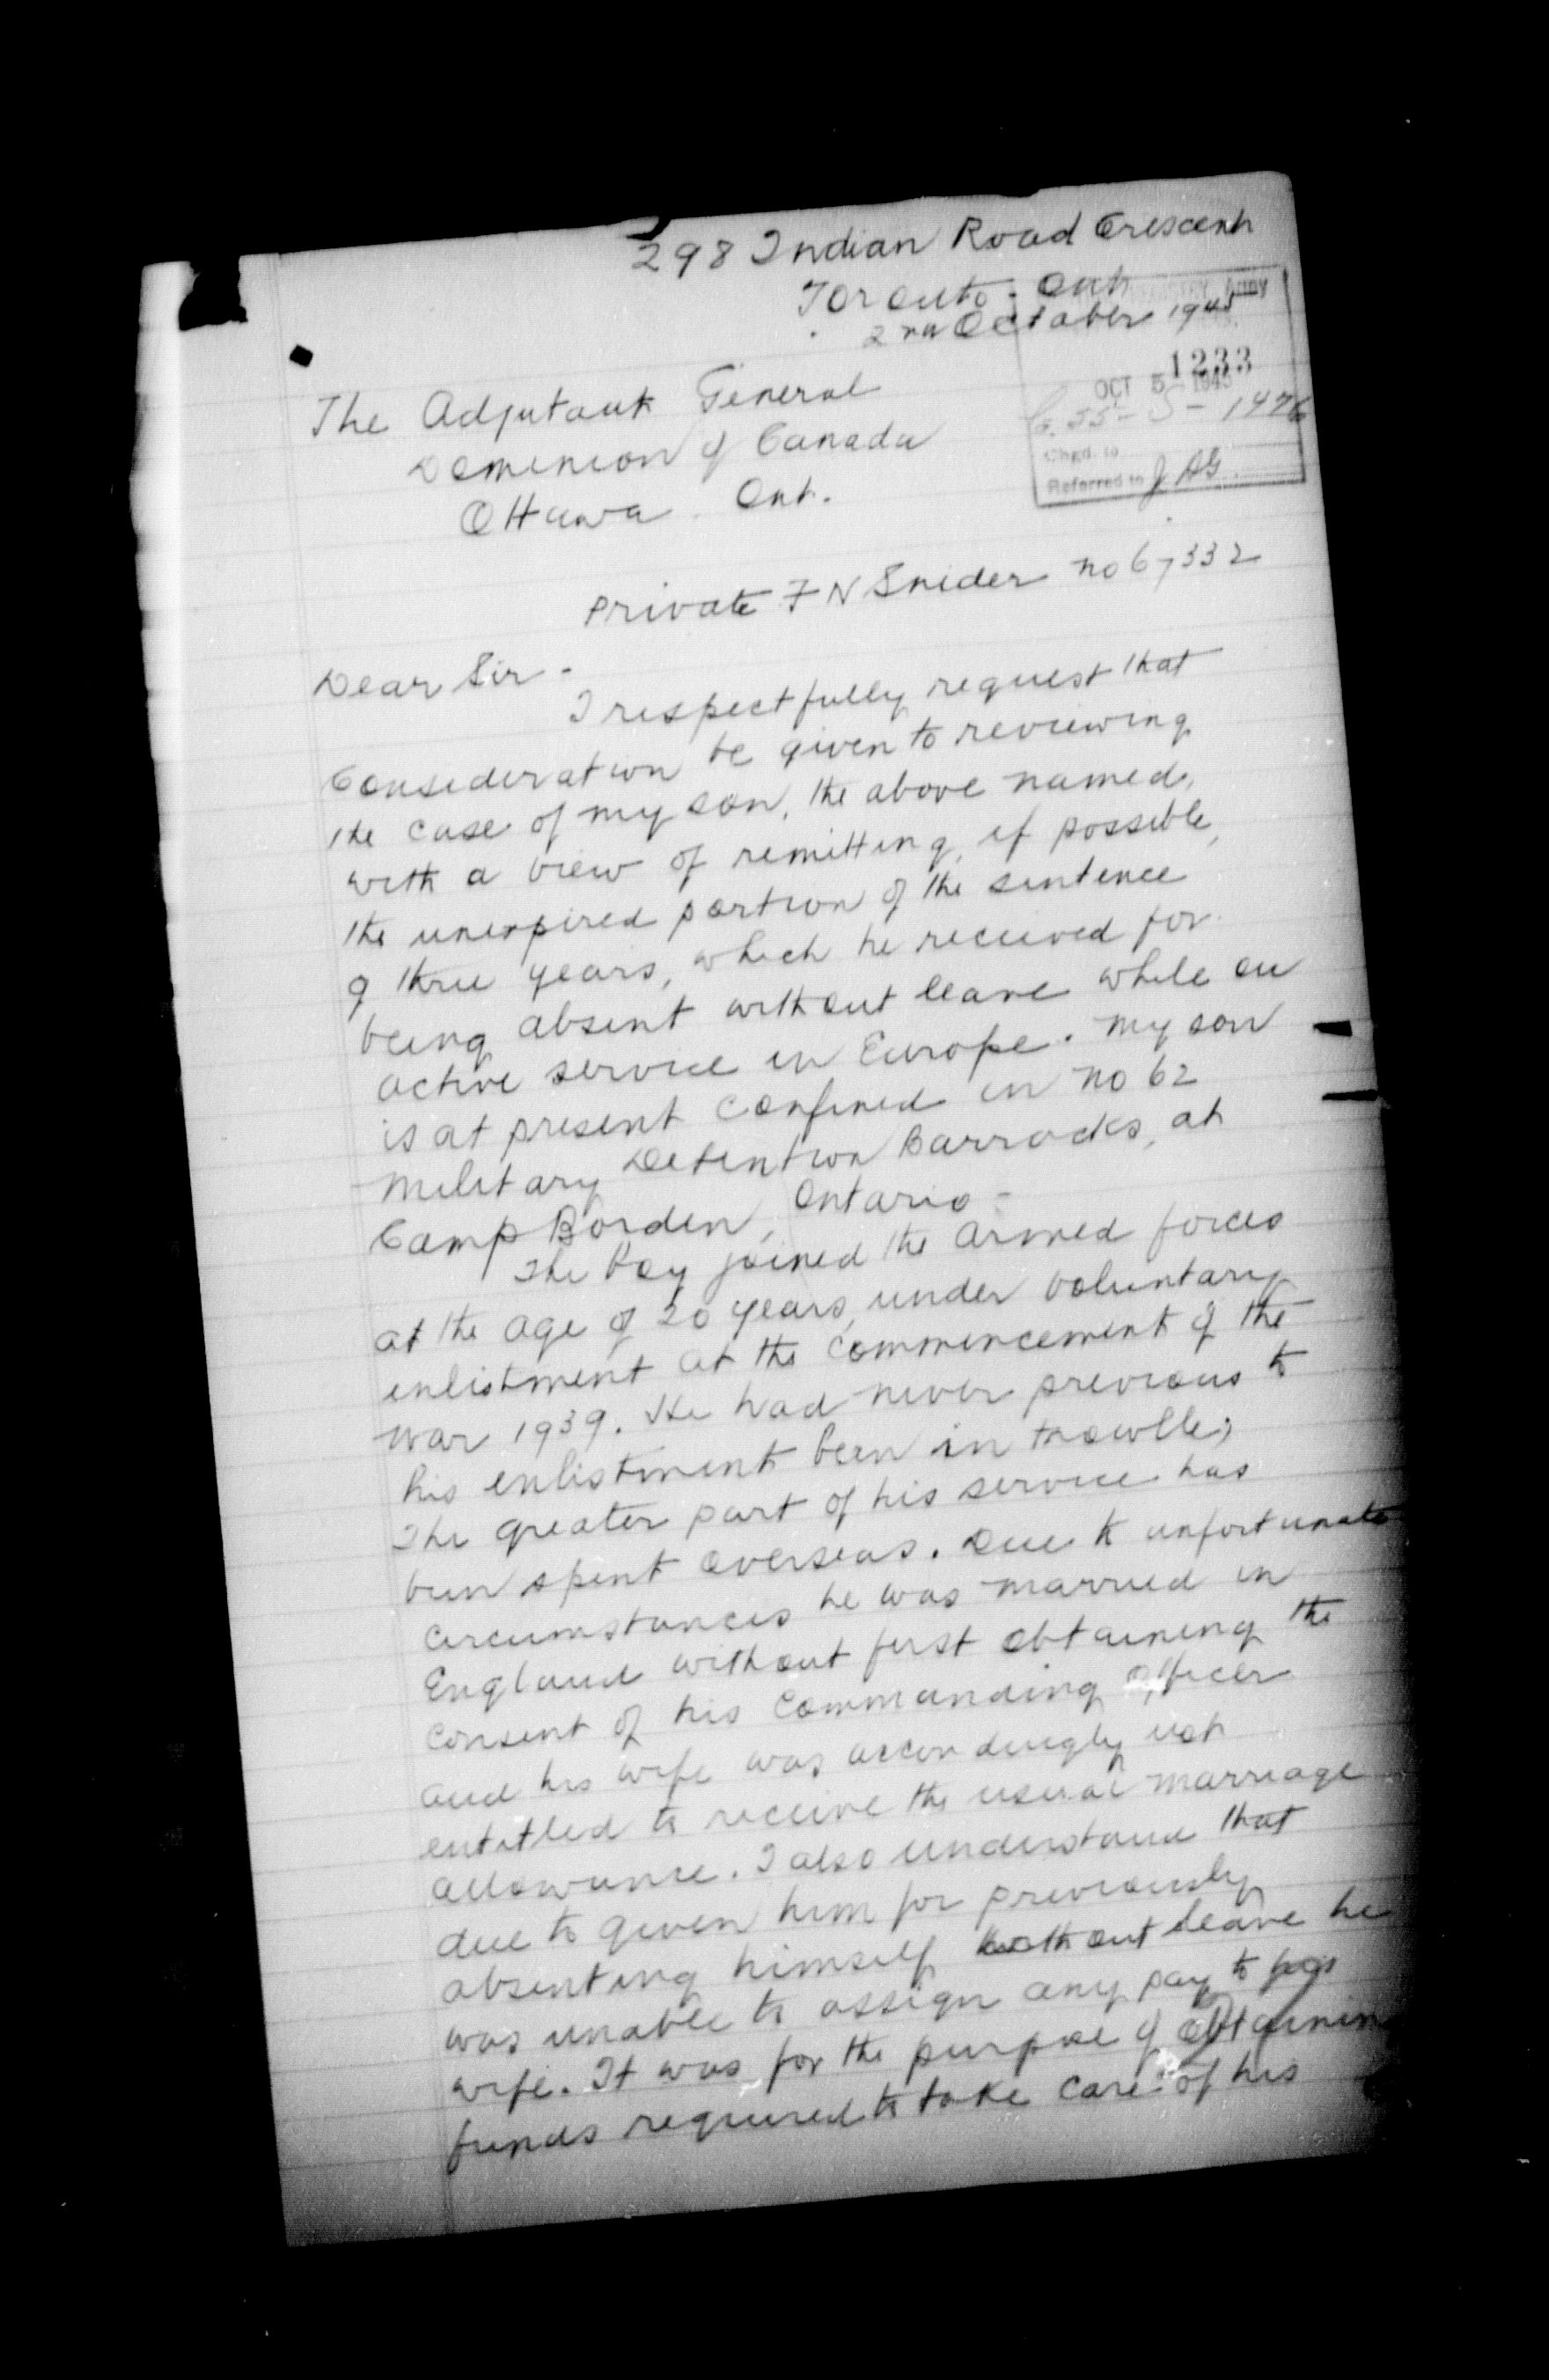 298 Indian Road Crescent
Toronto. Ont
2nd October 1945
Army
1233
OCT 5 1945
55-S-1476
Chgd. to
Referred to JAG
The Adjutant General
Dominion of Canada
Ottawa Ont.
Private F N Snider no 67332
Dear Sir -
I respectfully request that
Consideration be given to reviewing
the case of my son, the above named,
with a view of remitting, if possible,
the unexpired portion of the sentence
of three years, which he received for
being absent without leave while on
active service in Europe. My son
is at present confined in no 62
Military Detention Barracks, at
Camp Borden, Ontario -
The boy joined the armed forces
at the age of 20 years, under voluntary
enlistment at the commencement of the
war 1939. He had never previous to
his enlistment been in trouble,
The greater part of his service has
been spent overseas. Due to unfortunate
circumstances he was married in
England without first obtaining the
consent of his Commanding Officer
and his wife was accordingly not
entitled to receive the usual marriage
allowance. I also understand that
due to given him for previously
absenting himself without leave he
was unable to assign any pay to his
wife. It was for the purpose of obtainin
funds required to take care of his